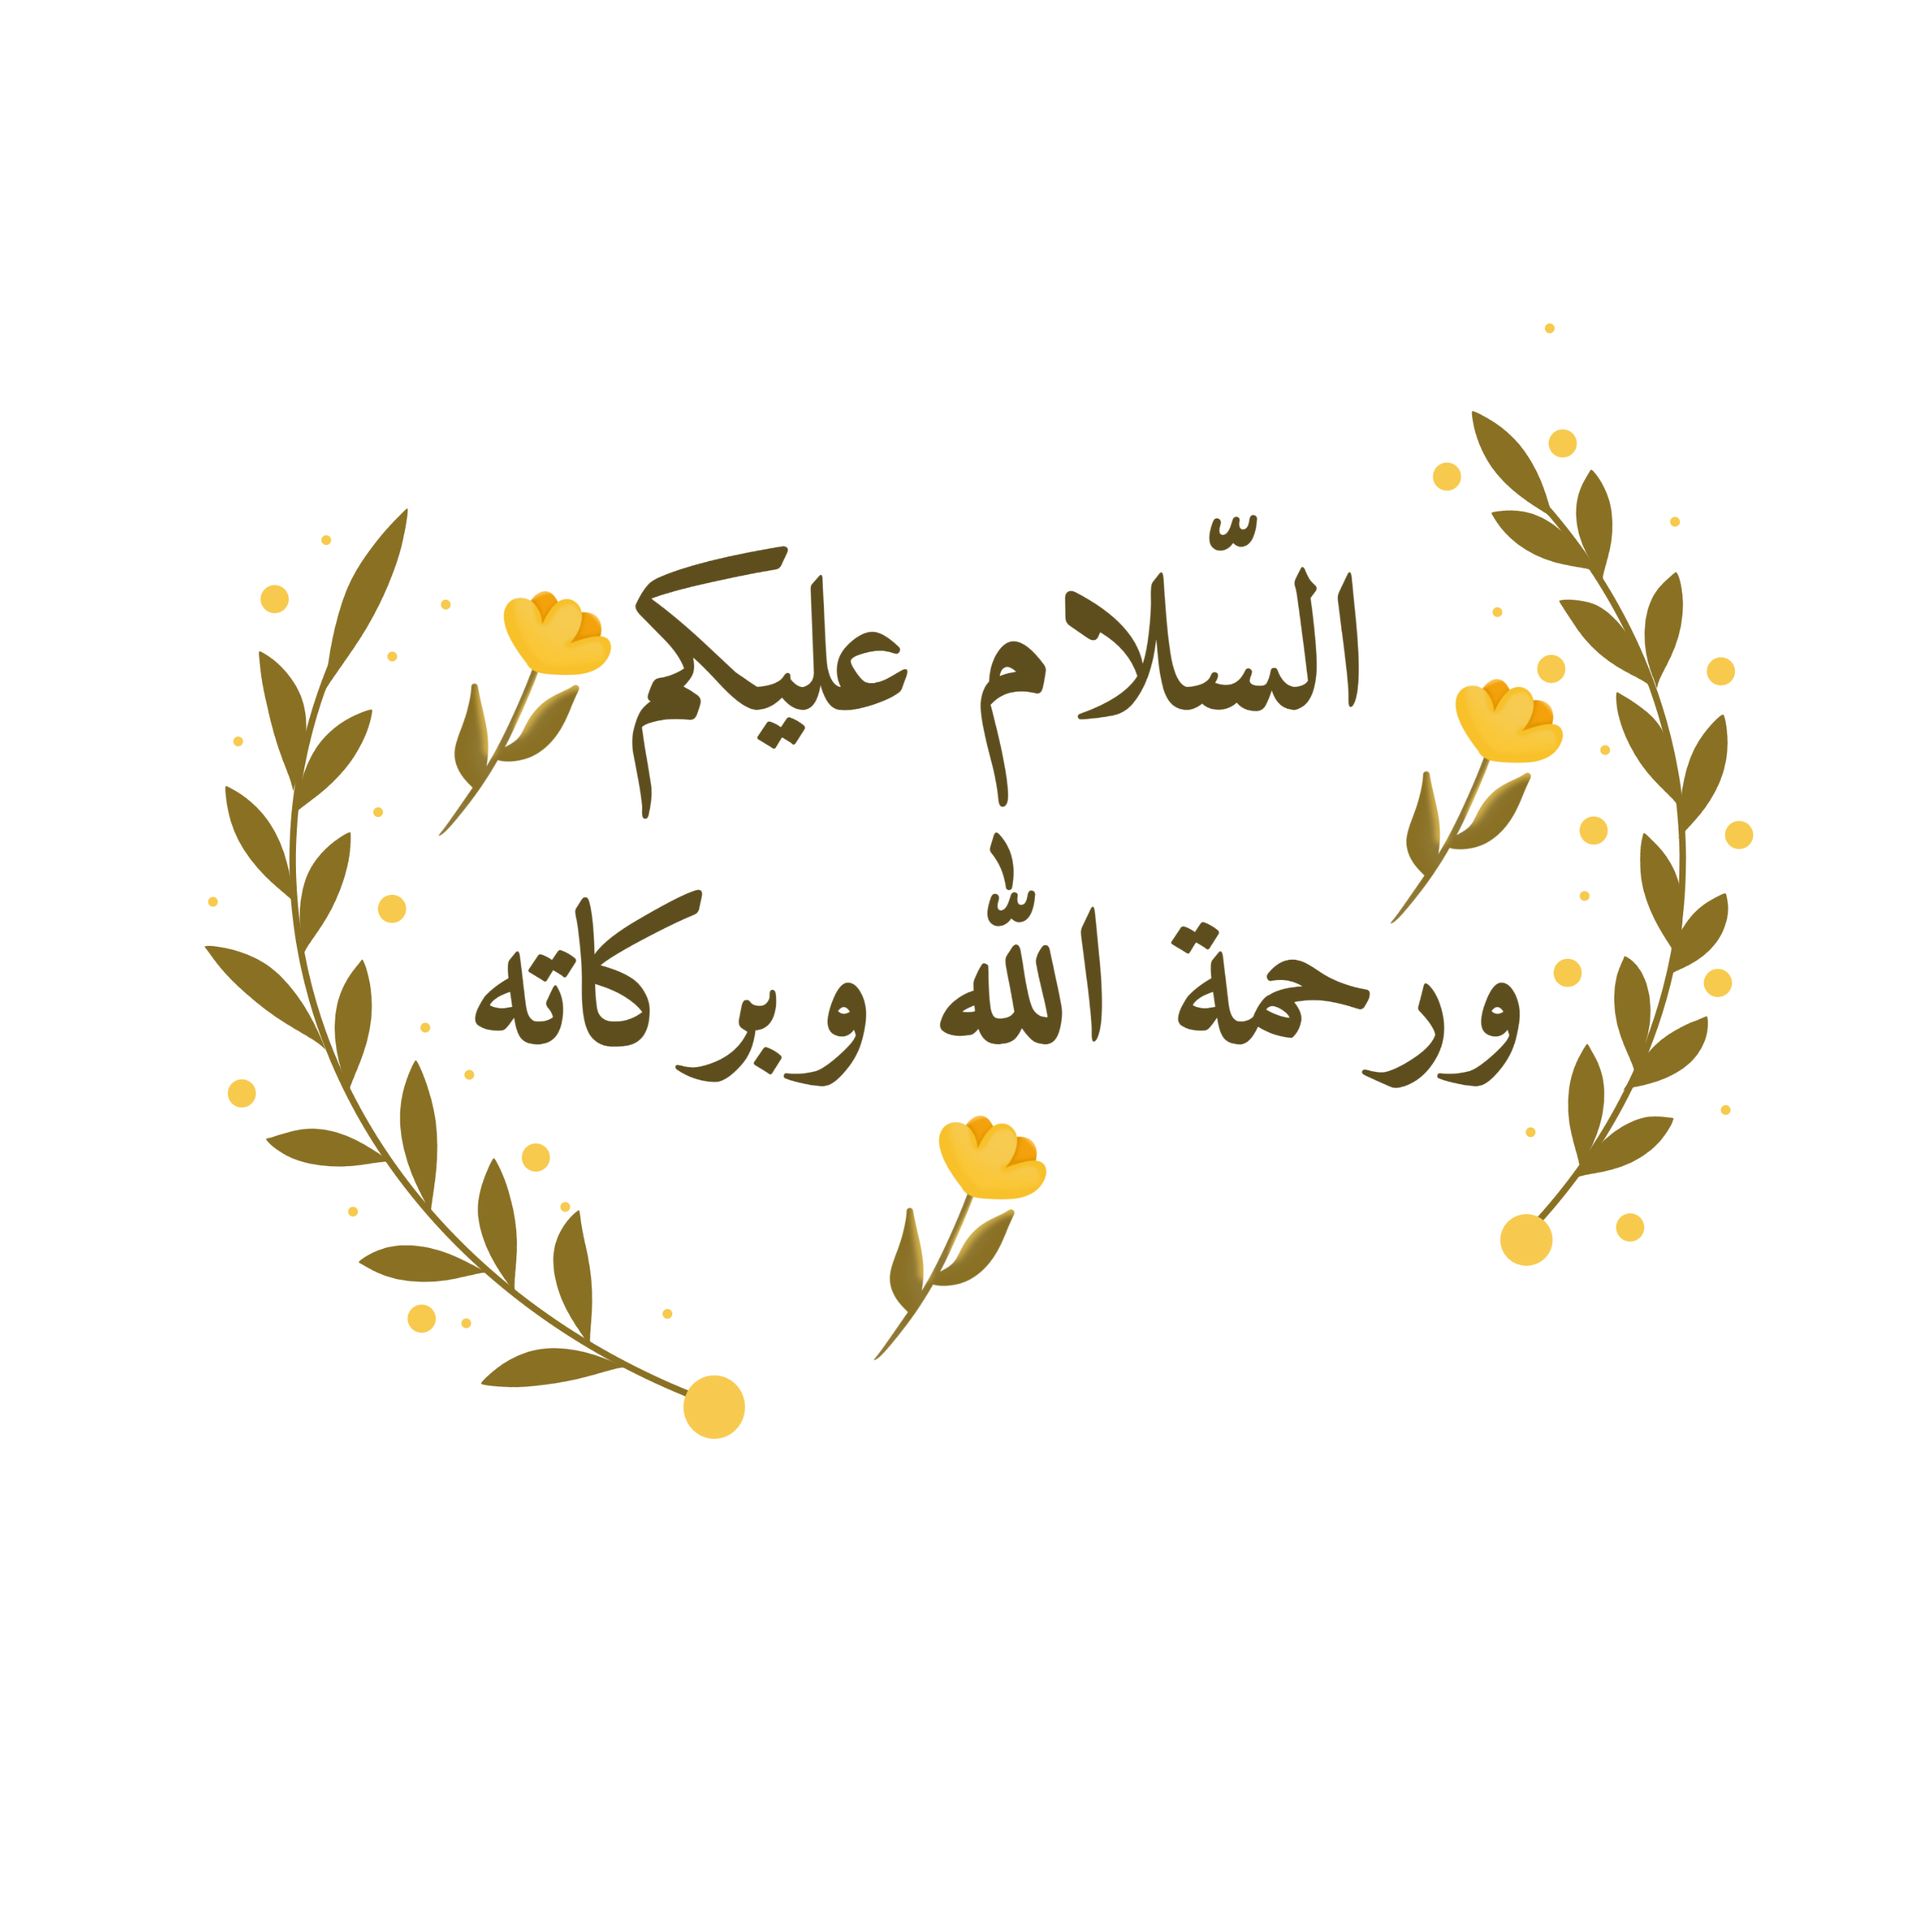 السّلام عليكم
ورحمة الله وبركاته